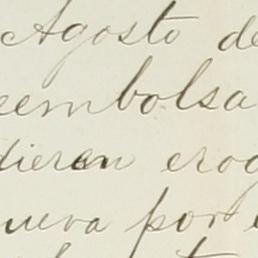 Agosto de
sembolsa
dieron erog
nueva por e